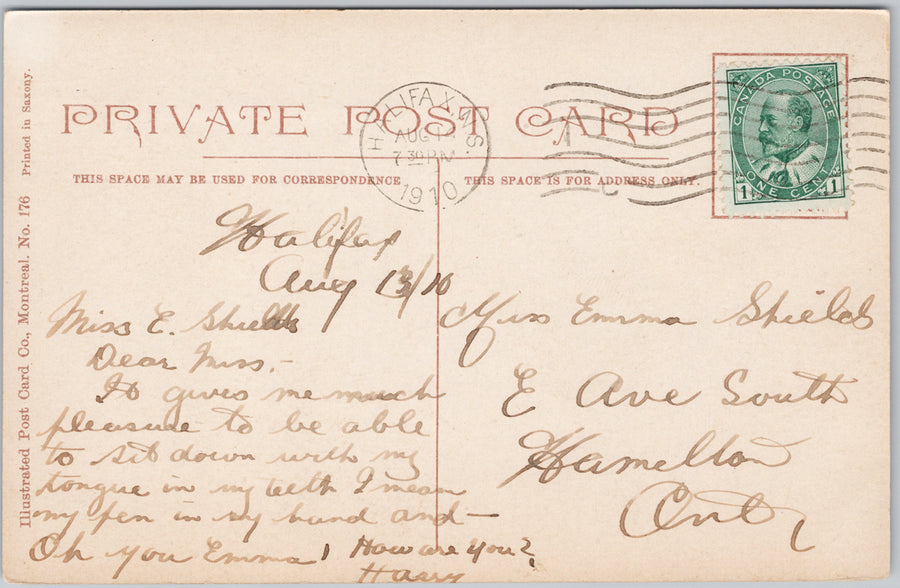 PRIVATE POST CARD
THIS SPACE MAY BE USED FOR CORRESPONDENCE
THIS SPACE IS FOR ADDRESS ONLY.
HALIFAX, N.S.
AUG
7 30 PM
1910
CANADA POSTAGE
1 ONE CENT 1
Illustrated Post Card Co., Montreal. No. 176 Printed in Saxony.
Halifax
Aug 13/10
Miss E. Shields
Dear Miss,-
It gives me much
pleasure to be able
to sit down with my
tongue in my teeth I mean
my pen in my hand and—
Oh you Emma! How are you?
Harry
Miss Emma Shields
E Ave South
Hamelton
Ont,